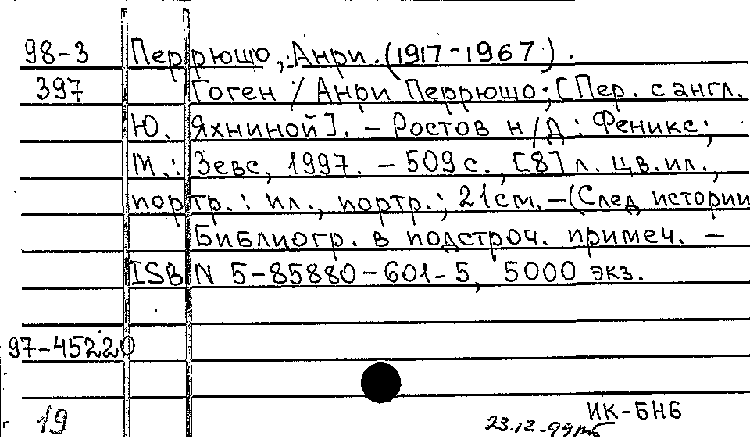 98-3 Перрюшо, Анри. (1917-1967).
397 Гоген / Анри Перрюшо; [Пер. с англ.
Ю. Яхниной]. - Ростов н/Д : Феникс;
М.: Зевс, 1997. - 509 с., [8] л. цв. ил.,
портр. : ил., портр.; 21 см. - (След истории
Библиогр. в подстроч. примеч. -
ISBN 5-85880-601-5, 5000 экз.
97-45220
19 23.12-99 ИК-БНБ